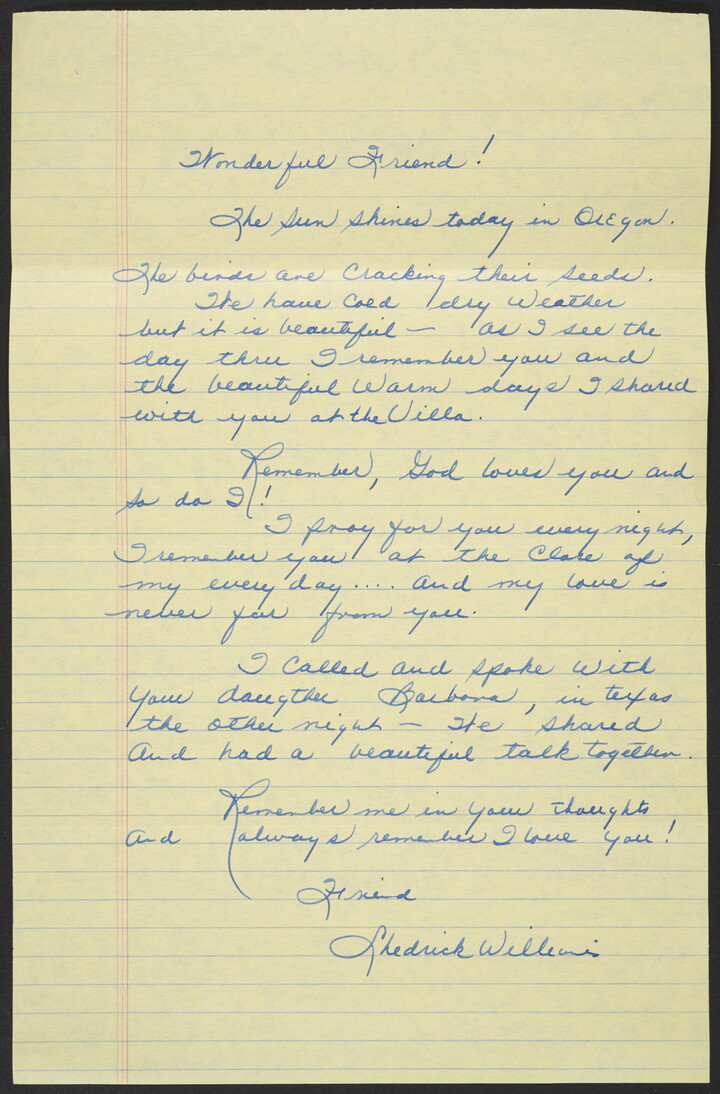 Wonderful Friend!
The Sun Shines today in OrEgon.
The birds are Cracking their Seeds.
We have Cold dry Weather
but it is beautiful — as I see the
day thru I remember you and
the beautiful Warm days I shared
with you at the Villa.
Remember, God loves you and
So do I!
I pray for you every night,
I remember you at the Close of
my every day.... And my love is
never far from you.
I Called and Spoke With
your daugther Barbara, in texas
the other night — We Shared
And had a beautiful talk together.
Remember me in your thoughts
And always remember I love you!
Friend
Shedrick Williams